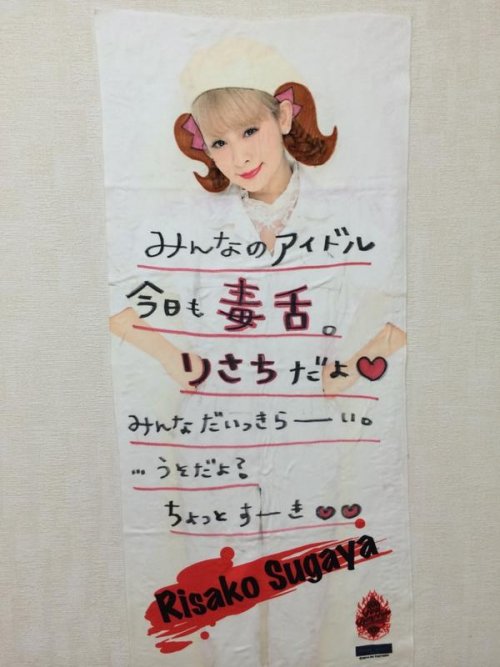 みんなのアイドル
今日も毒舌。
りさちだよ♥
みんなだいっきらーい。
…うそだよ?
ちょっとすーき♥♥
Risako Sugaya